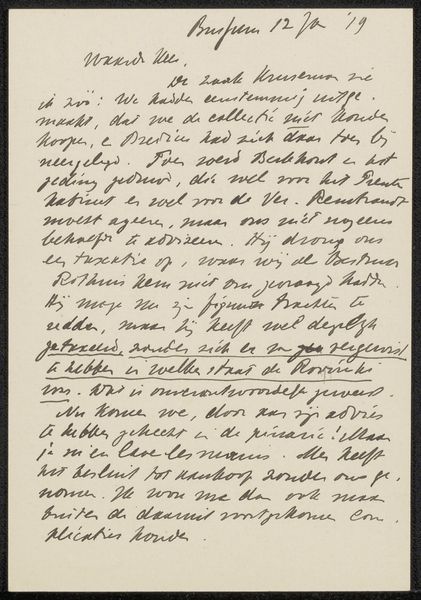 Bussum 12 Jan '19
Waarde Kees,
De zaak Kruseman zie
ik zóó: We hadden eenstemmig uitge-
maakt, dat we de collectie niet konden
koopen, e Bredius had zich daar toe bij
neergelegd. Toen werd Berkhout in het
geding, die wel voor het Prenten
kabinet en wel voor de Ver. Rembrandt
moest ageeren, maar ons niet nogeens
behoefde te adviseeren. Hij drong ons
een taxatie op, waar wij als Bestuur
hem niet om gevraagd hadden.
Hij moge nu zijn figuur trachten te
redden, maar hij heeft wel degelijk
getaxeerd, zonder zich er van vergewist
te hebben in welke staat de
was. Dat is onverantwoordelijk geweest.
Nu komen we, door aan zijn advies
te hebben gehecht in de penarie! Maar
je m'en lave les mains. Men heeft
het besluit tot aankoop zonder ons ge-
nomen. Ik voor me dan ook maar
buiten de daaruit voortgekomen com-
plicaties houden.